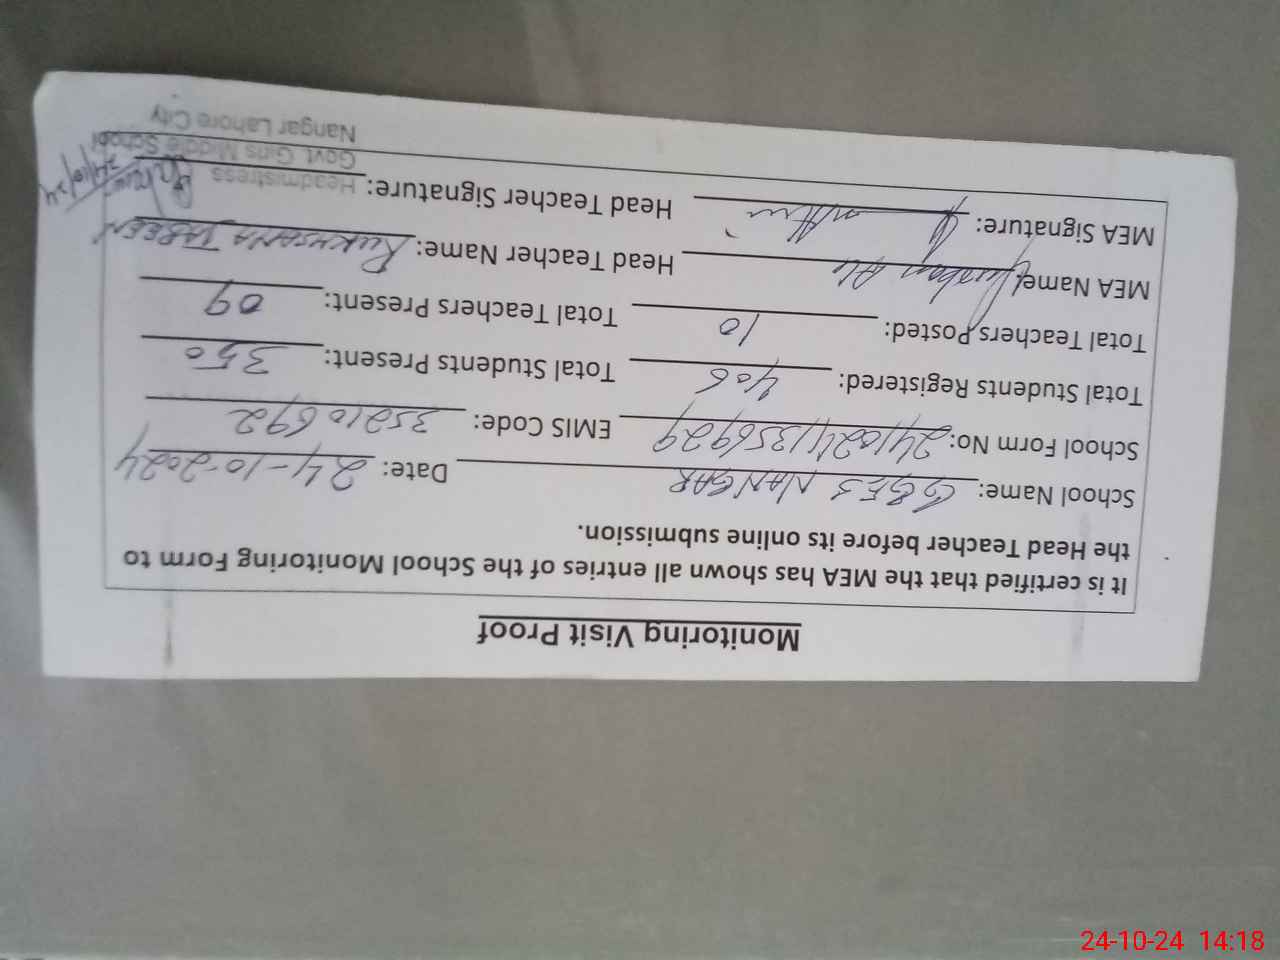 Monitoring Visit Proof
It is certified that the MEA has shown all entries of the School Monitoring Form to
the Head Teacher before its online submission.
School Name: GGES NANGAR Date: 24-10-2024
School Form No: 241024141356929 EMIS Code: 35210692
Total Students Registered: 406 Total Students Present: 350
Total Teachers Posted: 10 Total Teachers Present: 09
MEA Name: Ali Head Teacher Name: RUKHSANA TABEEN
MEA Signature: Head Teacher Signature:
24/10/24
Headmistress
Govt. Girls Middle School
Nangar Lahore City
24-10-24 14:18